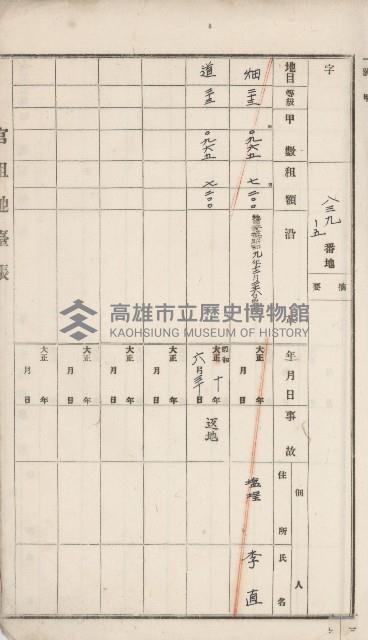 字
八三九
ノ五
番地
摘要
地目
等級
甲數
租額
沿革
年月日
事故
佃人
住所
氏名
畑
三三
〇九六五
七二〇〇
大正 年 月 日
塩埕
李直
道
三三
〇九六五
七二〇〇
昭和
大正 十年 六月三十日
返地
大正 年 月 日
大正 年 月 日
大正 年 月 日
大正 年 月 日
官租地臺帳
高雄市立歷史博物館
KAOHSIUNG MUSEUM OF HISTORY